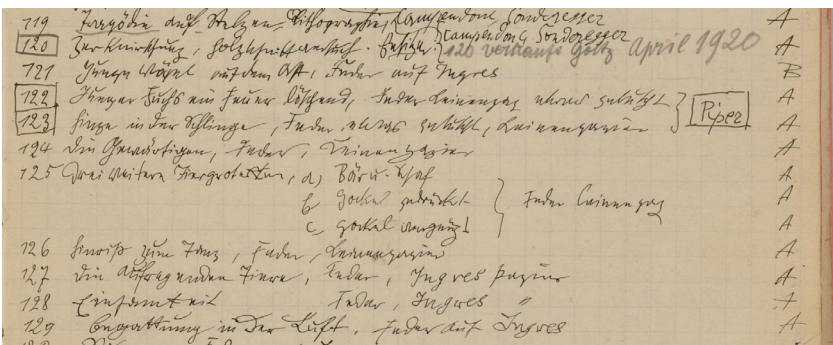 119 Tragödie auf Stelzen, Lithographie, Campendonk Sonderegger A
120 Zerknirschung, Holzschnittartisch. Besitzer: Campendonk Sonderegger A
120 verkauft Goltz April 1920
121 Junge Vögel auf dem Ast, Feder auf Ingres B
122 Junger Fuchs ein Feuer löschend, Feder Leinenpap etwas getuscht A
123 in der Schlinge, Feder, etwas getuscht, Leinenpapier Piper A
124 Die Gewärtigen, Feder, Leinenpapier A
125 Drei weitere Tiergrotesken, a) Bär u. Schaf A
b Gockel gedrückt Feder Leinenpap A
c, Gockel vergnügt A
126 hinriß zum Tanz, Feder, Leinenpapier A
127 Die aufregenden Tiere, Feder, Ingres Papier A
128 Einsamkeit Feder, Ingres " A
129 Begattung in der Luft. Feder auf Ingres A